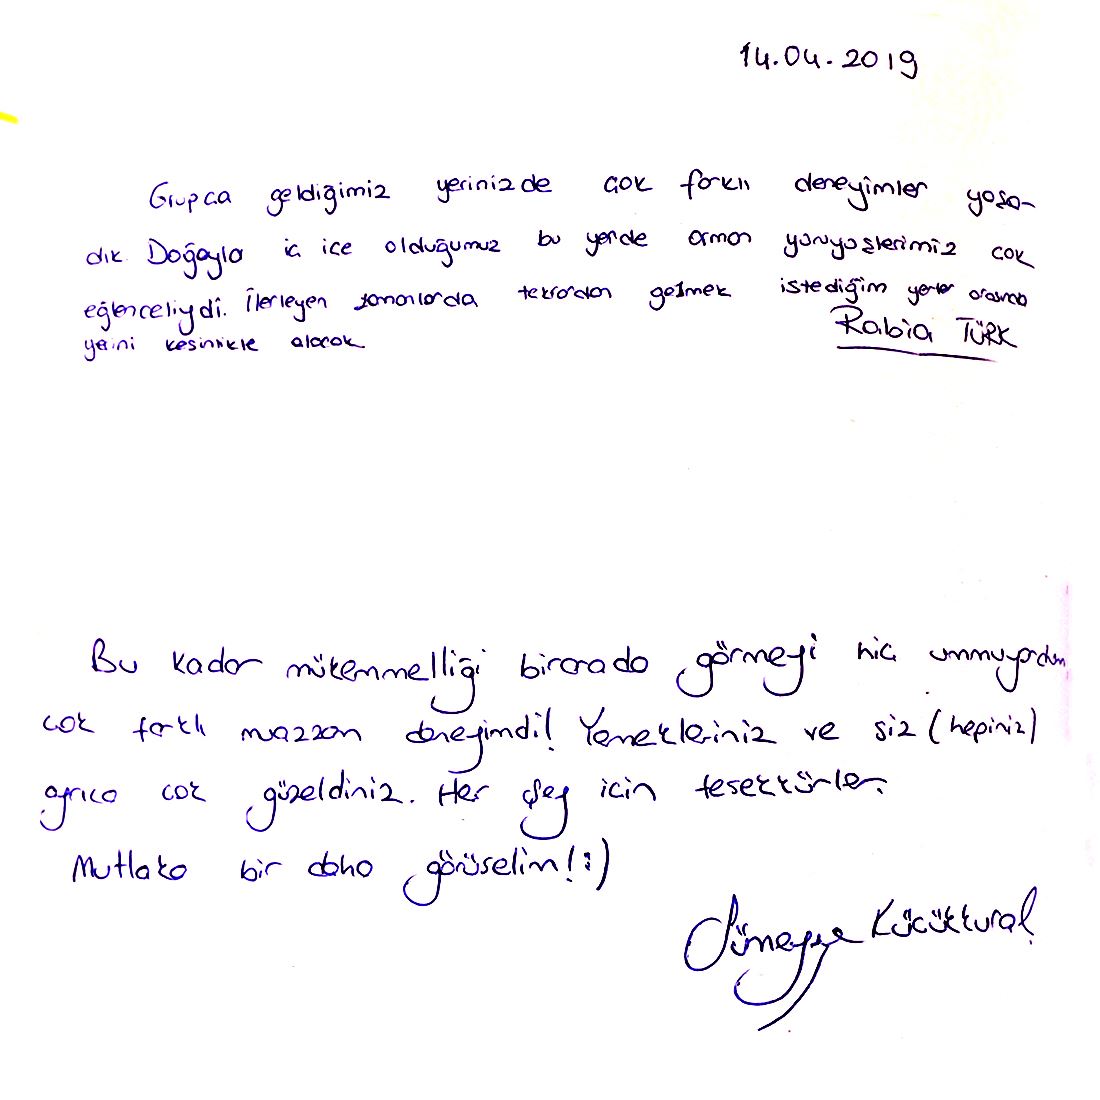 14.04.2019
Grupca geldiğimiz yerinizde çok farklı deneyimler yaşa-
dık. Doğayla iç içe olduğumuz bu yerde orman yürüyüşlerimiz çok
eğlenceliydi. İlerleyen zamanlarda tekrardan gelmek istediğim yerler arasında
yerini kesinlikle alacak
Rabia TÜRK
Bu kadar mükemmelliği birarada görmeyi hiç ummuyordum,
çok farklı muazzam deneyimdi! Yemekleriniz ve siz (hepiniz)
ayrıca çok güzeldiniz. Her şey için teşekkürler.
Mutlaka bir daha görüşelim! :)
Sümeyye Küçükkural